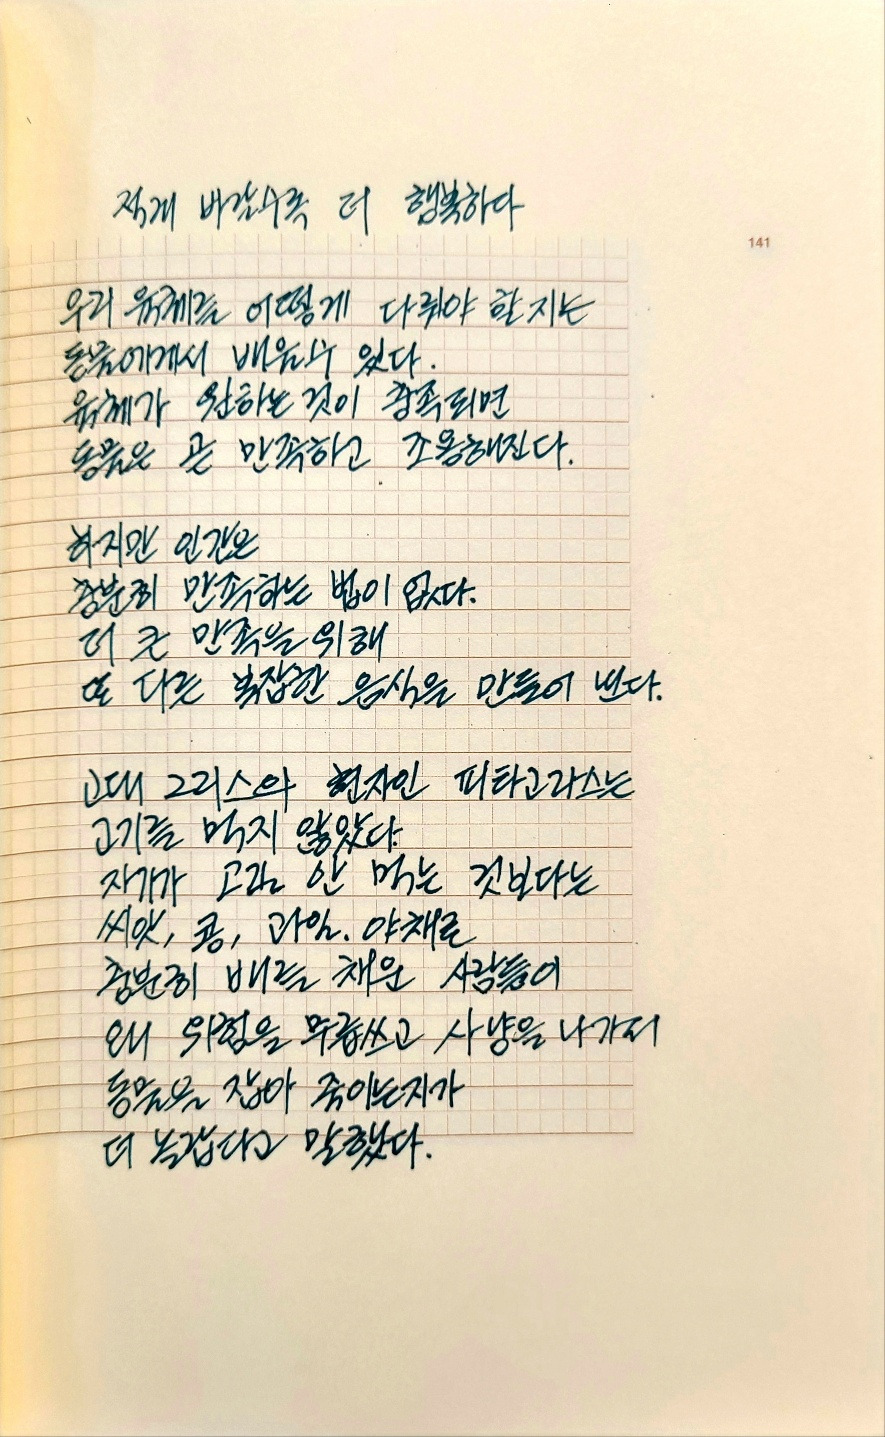 적게 바랄수록 더 행복하다
141
우리 육체를 어떻게 다뤄야 할지는
동물에게서 배울 수 있다.
육체가 원하는 것이 충족되면
동물은 곧 만족하고 조용해진다.
하지만 인간은
충분히 만족하는 법이 없다.
더 큰 만족을 위해
또 다른 복잡한 음식을 만들어 낸다.
고대 그리스의 현자인 피타고라스는
고기를 먹지 않았다.
자기가 고길 안 먹는 것보다는
씨앗, 콩, 과일. 야채로
충분히 배를 채운 사람들이
왜 위험을 무릅쓰고 사냥을 나가서
동물을 잡아 죽이는지가
더 놀랍다고 말했다.